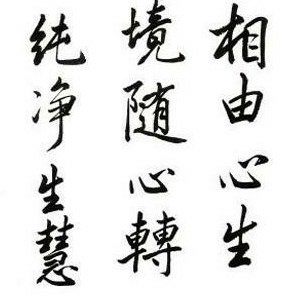 相由心生
境随心轉
纯净生慧